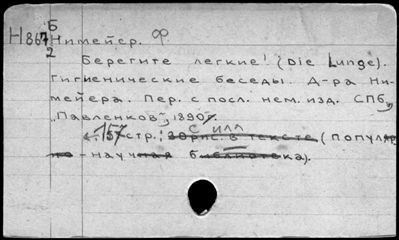 Б
Н867 Нимейер. Ф
2
Берегите легкие! (Die Lunge).
Гигиенические беседы. Д-ра Ни-
мейера. Пер. с посл. нем. изд. СПб,
„Павленков", 1890.
с илл
157 стр.; 30 рис. в тексте (Популяр
но-научная библиотека).